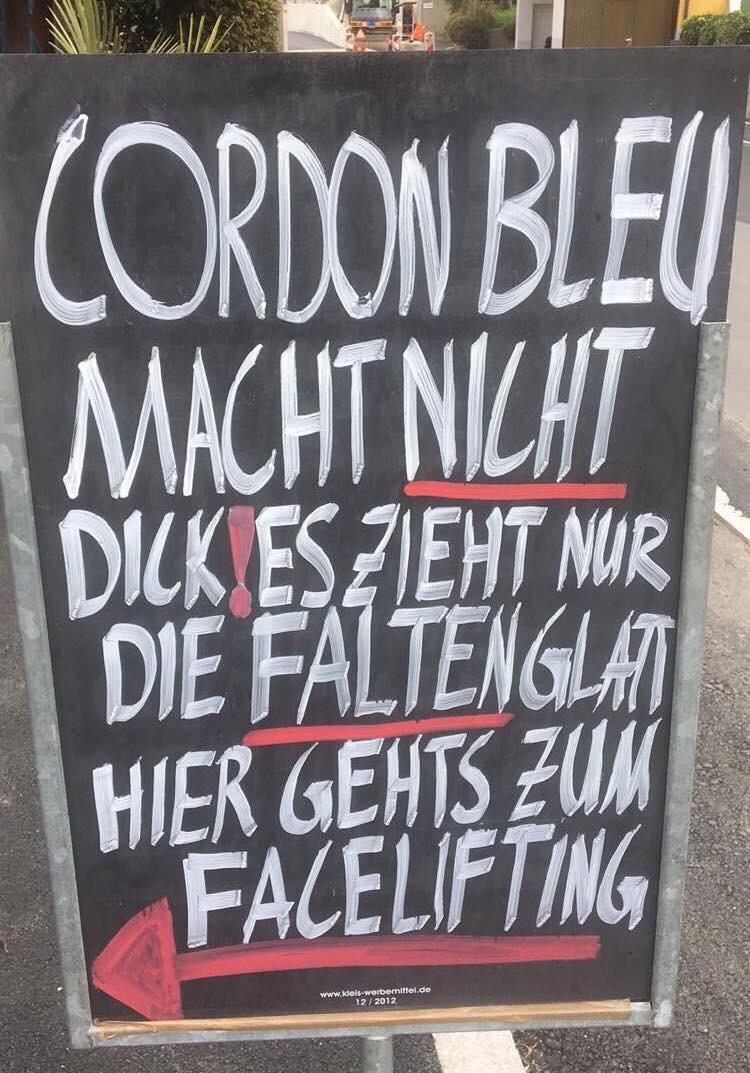 CORDON BLEU
MACHT NICHT
DICK! ES ZIEHT NUR
DIE FALTEN GLATT
HIER GEHTS ZUM
FACELIFTING
www.kleis-werbemittel.de
12 / 2012